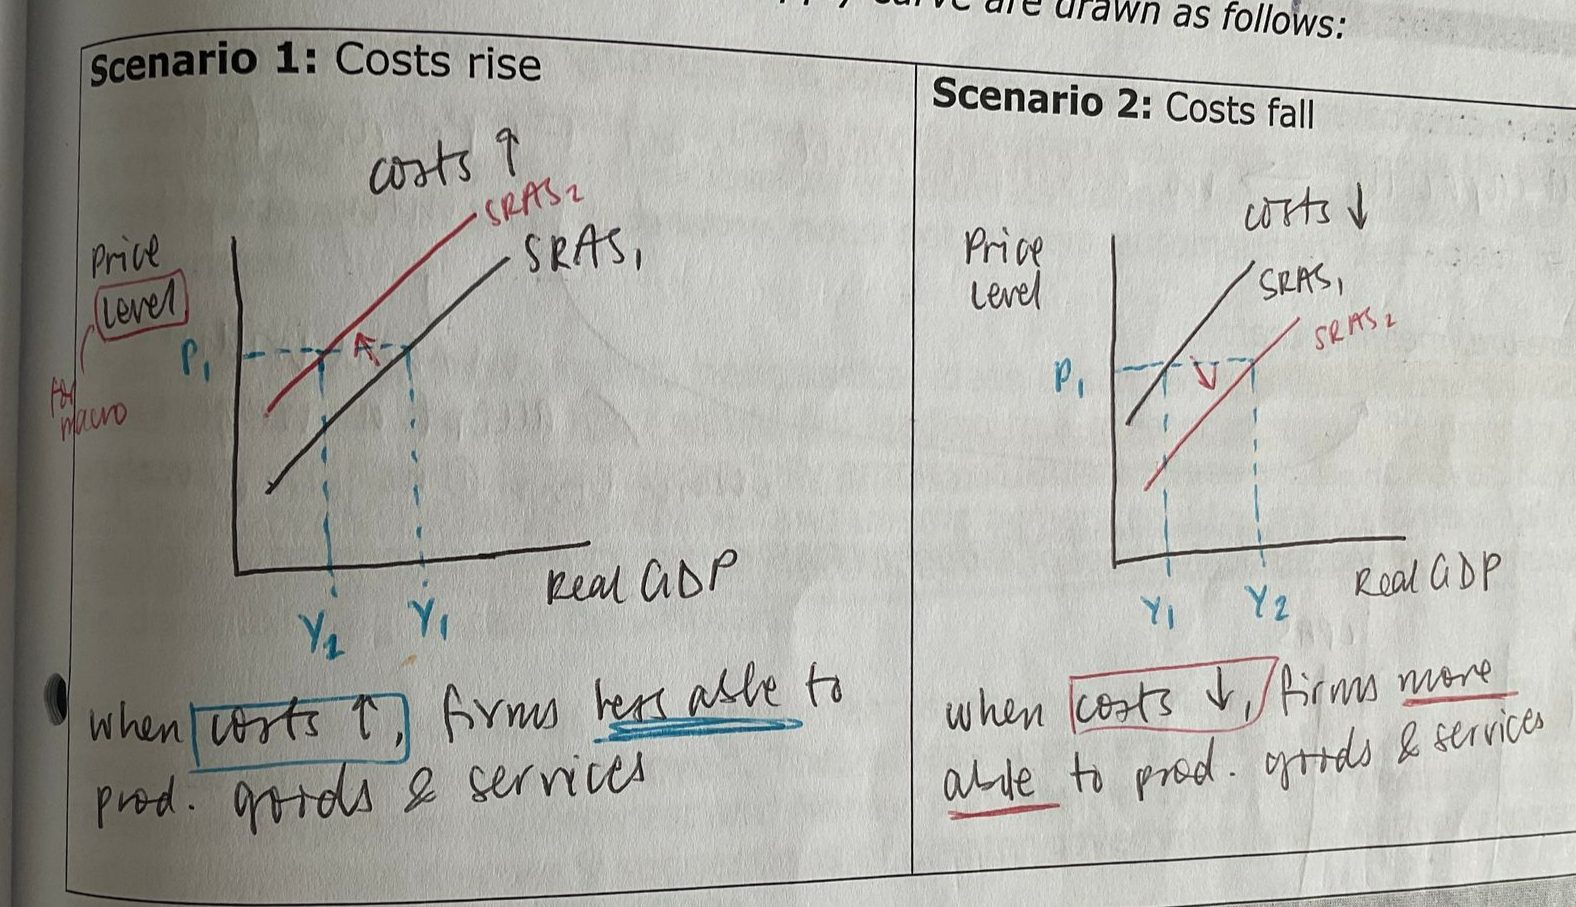 curve are drawn as follows:
Scenario 1: Costs rise
costs ↑
SRAS2
SRAS1
Price
Level
for
macro
P1
Real GDP
Y2
Y1
when costs ↑, firms less able to
prod. goods & services
Scenario 2: Costs fall
costs ↓
Price
Level
SRAS1
SRAS2
P1
Real GDP
Y1
Y2
when costs ↓, firms more
able to prod. goods & services